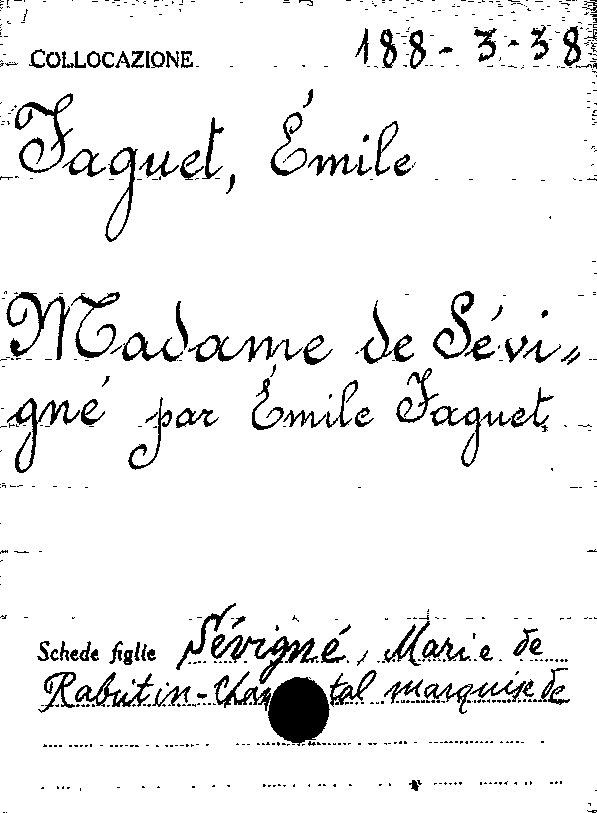 COLLOCAZIONE 188-3-38
Faguet, Émile
Madame de Sévi=
gné par Émile Faguet
Schede figlie Sévigné, Marie de
Rabutin-Chantal marquise de